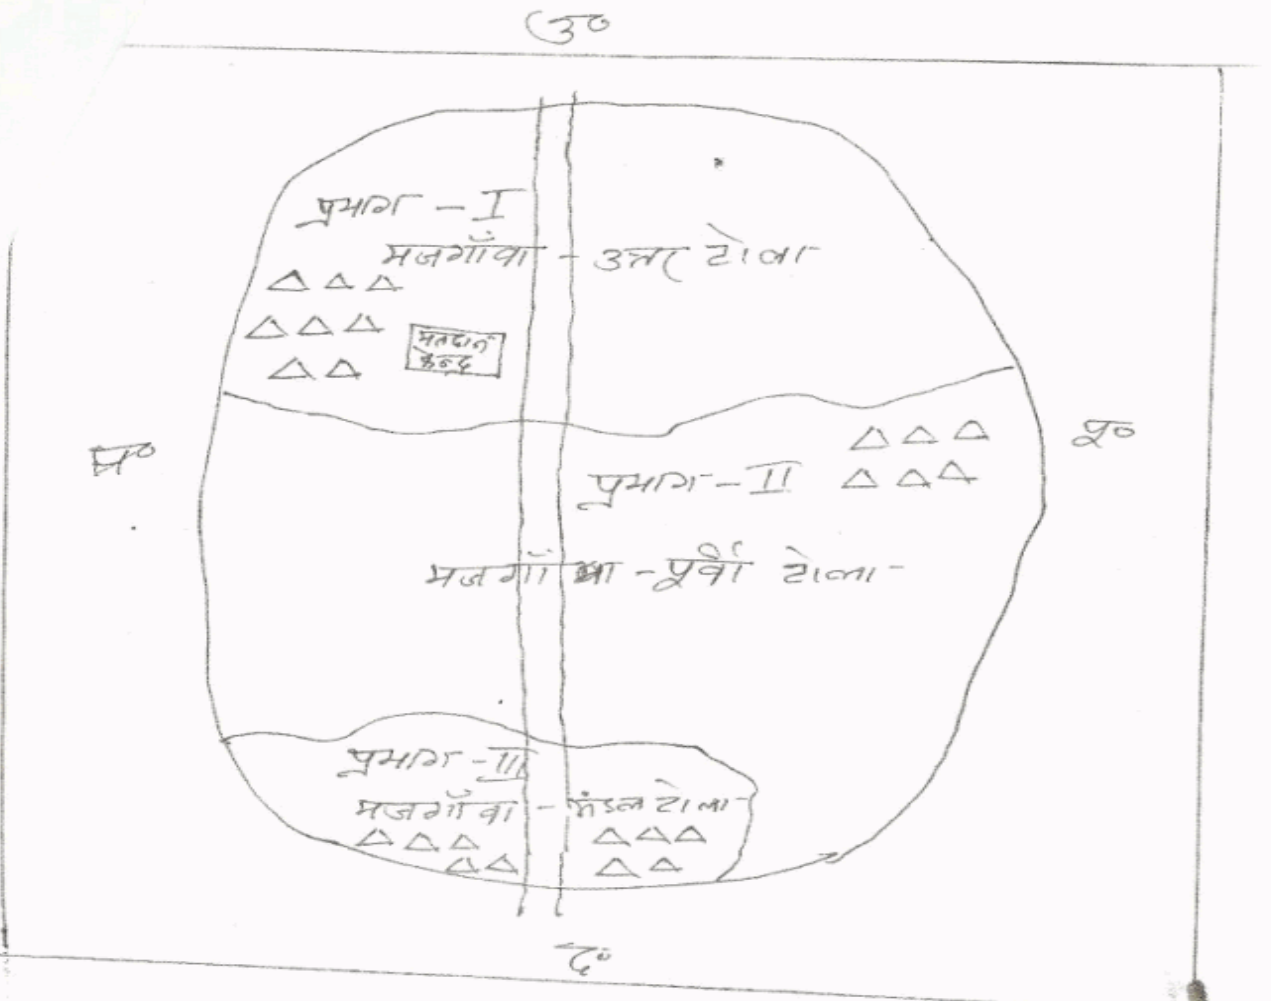 उ०
प्रभाग - I
मजगाँवा - उत्तर टोला
मतदान
केन्द्र
प०
पू०
प्रभाग - II
मजगाँवा - पूर्वी टोला
प्रभाग - III
मजगाँवा - मंडल टोला
द०